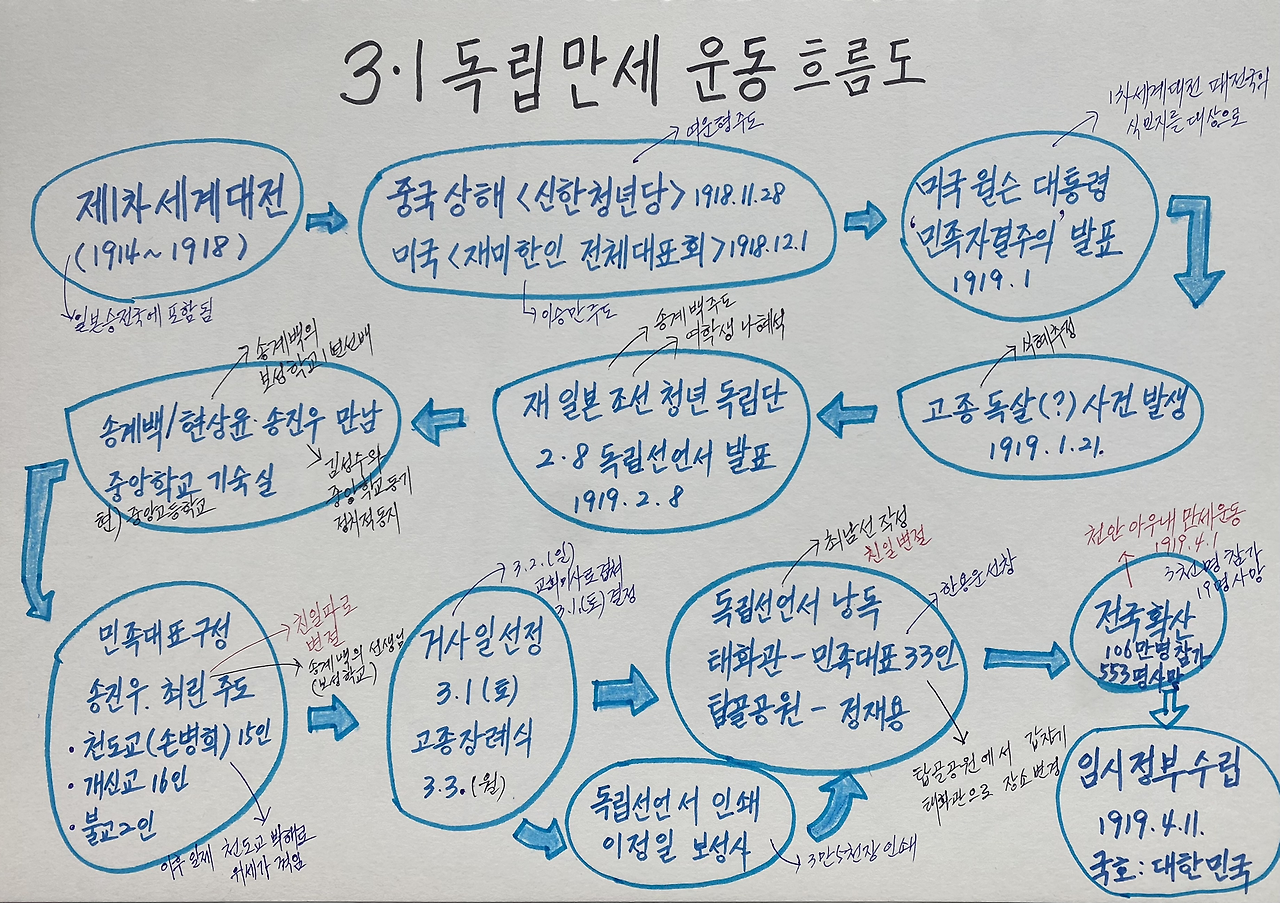 3·1 독립만세 운동 흐름도
제1차 세계대전
(1914~1918)
일본승전국에 포함됨
여운형주도
중국 상해 <신한청년당> 1918.11.28
미국 <재미한인 전체대표회> 1918.12.1
이승만주도
1차세계대전 패전국의
식민지를 대상으로
미국 윌슨 대통령
'민족자결주의' 발표
1919.1
식혜추정
고종 독살(?) 사건 발생
1919.1.21.
송계백주도
여학생 나혜석
재 일본 조선 청년 독립단
2.8 독립선언서 발표
1919.2.8
송계백의
보성학교 1년선배
송계백/현상윤·송진우 만남
중앙학교 기숙실
현) 중앙고등학교
김성수와
중앙학교동기
정치적동지
민족대표구성
송진우. 최린 주도
· 천도교(손병희) 15인
· 개신교 16인
· 불교2인
친일파로
변절
송계백의 선생님
(보성학교)
이후 일제 천도교 박해로
위세가 꺾임
3.2.(일)
교회미사로겹쳐
3.1(토) 결정
거사일선정
3.1(토)
고종장례식
3.3.(월)
독립선언서 인쇄
이정일 보성사
3만5천장 인쇄
최남선 작성
친일변절
독립선언서 낭독
태화관 - 민족대표 33인
탑골공원 - 정재용
한용운선창
탑골공원에서 갑자기
태화관으로 장소변경
천안 아우내 만세운동
1919.4.1
3천명 참가
19명사망
전국확산
106만명참가
553명사망
임시정부수립
1919.4.11.
국호: 대한민국